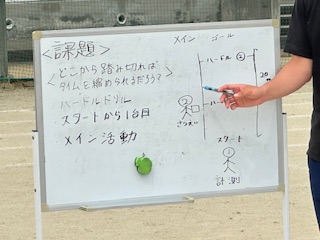 <課題>
<どこから踏み切れば
タイムを縮められるだろう?>
ハードルドリル
スタートから1台目
メイン活動
メイン ゴール
ハードル ②
20
②
さつえい
ハー
スタート
①
計測